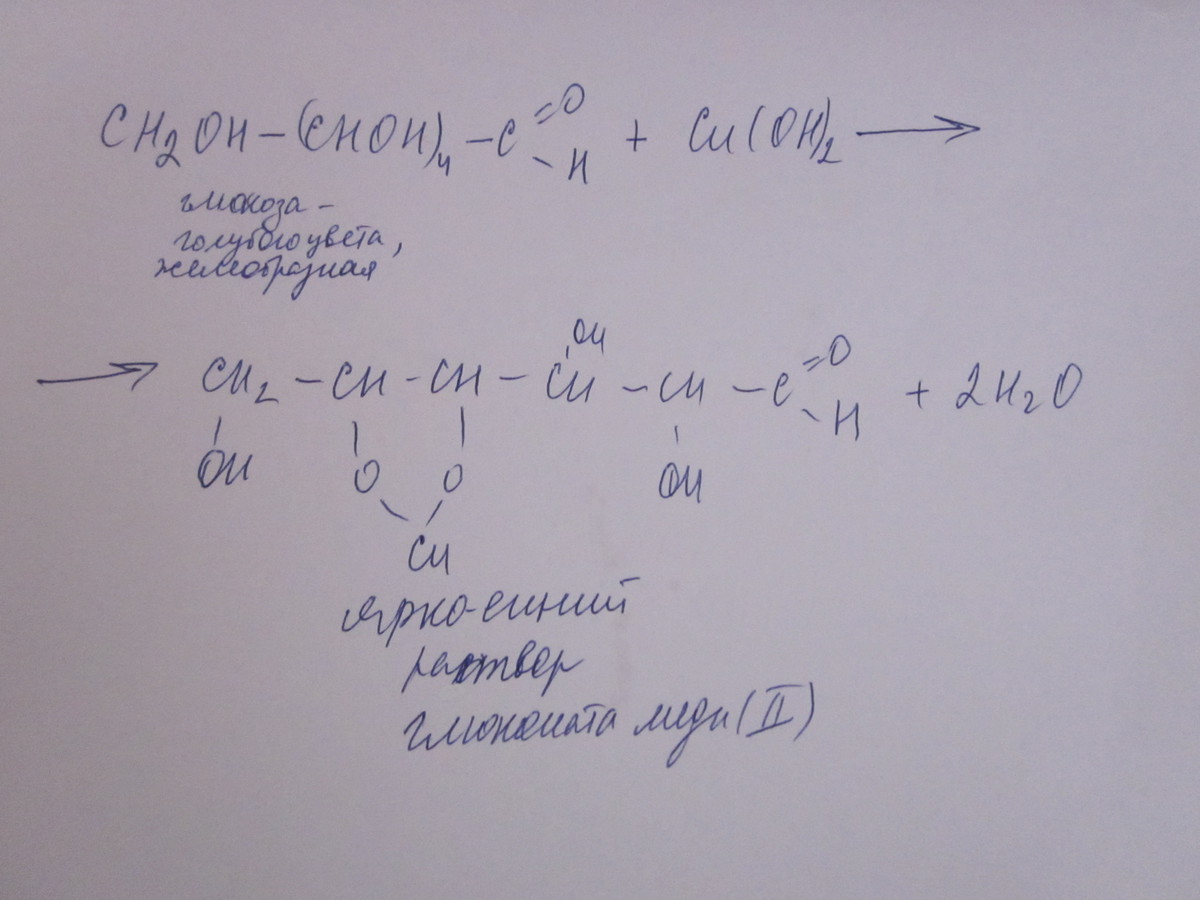 CH₂OH – (CHOH)₄ – C =O – H + Cu(OH)₂ →
глюкоза –
голубого цвета,
желеобразная
→ CH₂ – CH – CH – CH – CH – C =O – H + 2H₂O
OH
OH O O OH
Cu
ярко-синий
раствор
глюконата меди (II)